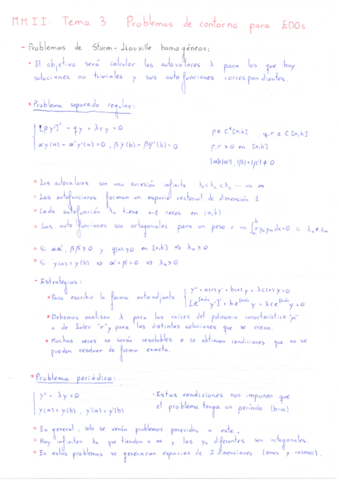 MMII: Tema 3 Problemas de contorno para EDOs
- Problemas de Sturm-Liouville homogéneos:
• El objetivo será calcular los autovalores λ para los que hay
soluciones no triviales y sus autofunciones correspondientes.
• Problema separado regular:
[py']' - qy + λry = 0
p ∈ C¹[a,b] q, r ∈ C[a,b]
αy(a) - α'y'(a) = 0, βy(b) + βy'(b) = 0
p, r > 0 en [a,b]
|α|+|α'|, |β|+|β'| ≠ 0
• Los autovalores son una sucesión infinita
• Las autofunciones forman un espacio vectorial de dimensión 1
• Cada autofunción tiene ceros en (a,b)
• Las autofunciones son ortogonales para un peso r
• Si αα', ββ' ≥ 0 y q(x) ≥ 0 en [a,b] ⇒ λn ≥ 0
• Estrategias:
• Para escribir la forma autoadjunta
• Debemos analizar λ para las raíces del polinomio característico "μ"
o de Euler "r" y para las distintas soluciones que se crean.
• Muchas veces no serán resolubles o se obtienen condiciones que no se
pueden resolver de forma exacta.
• Problema periódico:
y'' + λy = 0
y(a) = y(b), y'(a) = y'(b)
· Estas condiciones nos imponen que
el problema tenga un período (b-a)
• En general, solo se verán problemas parecidos a este.
• Hay infinitos λn que tienden a ∞ y las yn diferentes son ortogonales.
• En estos problemas se generarán espacios de 2 dimensiones (senos y cosenos).